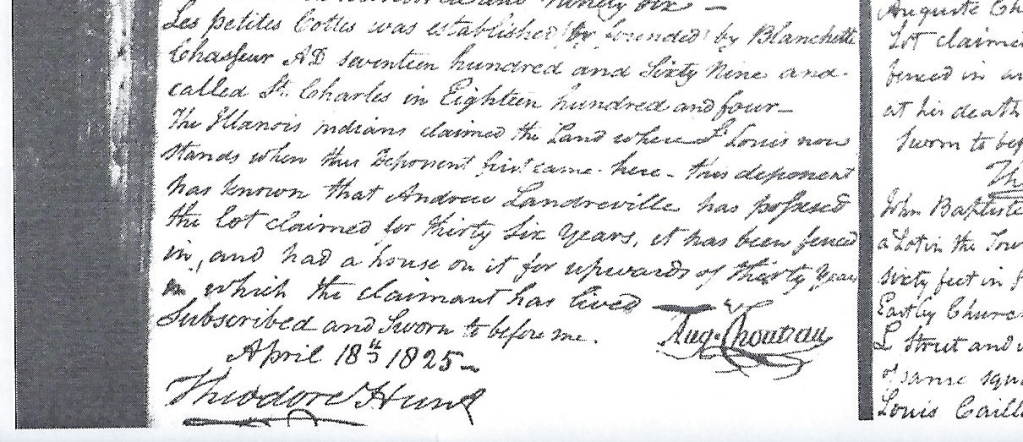 and Ninety Six —
Les petites Cottes was established (or founded) by Blanchette
Chasseur AD seventeen hundred and Sixty Nine and
called St. Charles in Eighteen hundred and four —
The Illanois indians claimed the Land where St Louis now
stands when this Deponent first came here - this deponent
has known that Andrew Landreville has possessed
the lot claimed for thirty six years, it has been fenced
in, and had a house on it for upwards of thirty years
in which the claimant has lived
Subscribed and Sworn to before me.
Aug. Chouteau
April 18th 1825 —
Theodore Hunt
Auguste Ch
Lot claime
fenced in an
at his death
Sworn to bef
Th
John Baptiste
a Lot in the Tow
sixty feet in f
East by Church
L Street and
of same squ
Louis Caill